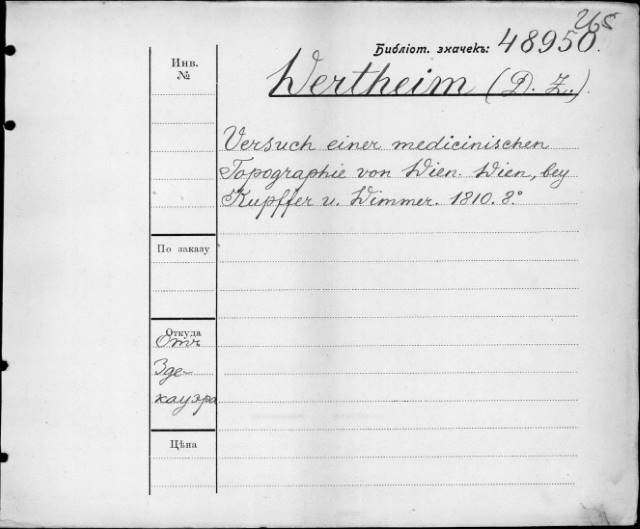 Библіот. значекъ: 48950.
Инв.
№
Wertheim (D. Z.).
Versuch einer medicinischen
Topographie von Wien. Wien, bey
Kupffer u. Wimmer. 1810. 8°
По заказу
Откуда
Отъ
Зде-
кауэра
Цѣна